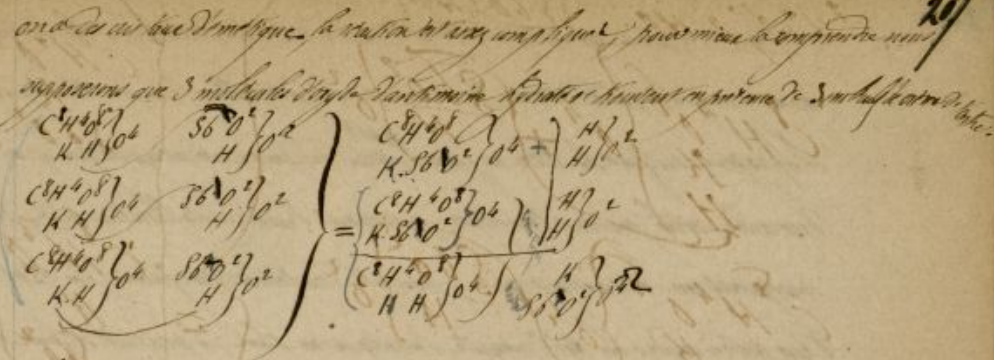 207
on a des cristaux d'émétique. la réaction est assez compliquée, pour mieux la comprendre nous
supposerons que 3 molécules d'oxyde d'antimoine hydraté se trouvent en présence de 3 molécules crème de tartre.
C⁸H⁴O⁸ } O⁴ SbO² } O² C⁸H⁴O⁸ } O⁴ + H } O²
K H H K.SbO² H
C⁸H⁴O⁸ } O⁴ SbO² } O² = C⁸H⁴O⁸ } O⁴ H } O²
K H H K.SbO² H
C⁸H⁴O⁸ } O⁴ SbO² } O² C⁸H⁴O⁸ } O⁴ K } O²
K.H H H H SbO²